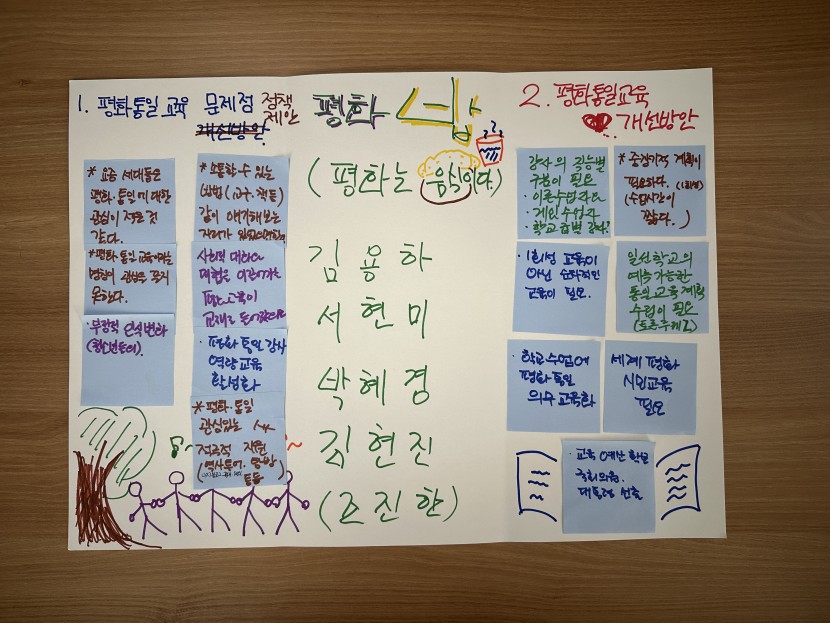 1. 평화통일 교육 문제점 정책
제안
개선방안
* 요즘 세대들은
평화·통일에 대한
관심이 적은 것
같다.
* 평화통일 교육에는
별말이 관심을 쫓지
못한다.
· 부정적 인식변화
(청소년들이)
* 소통할 수 있는
방법 (교구, 책 등)
같이 얘기해보는
자리가 있었으면
사회적 대화와
교육이
교재로
· 평화 통일 강사
역량교육
활성화
* 평화·통일
관심있는
적극적 지원
(역사투어, 탐방
등등)
평화 식탁
(평화는 음식이다.)
김용하
서현미
박혜경
김현진
(조진한)
2. 평화통일교육
개선방안
강사의 직능별
구분이 필요
· 이론수업자와
· 게임수업자
· 학교급별 강사?
* 중장기적 계획이
필요하다. (1회성)
(수업시간이
짧다.)
· 1회성 교육이
아닌 순차적인
교육이 필요.
일선학교의
예측 가능한
통일교육 계획
수립이 필요
· 학교 수업에
평화 통일
의무 교육화
세계 평화
시민교육
필요
· 교육 예산 확보
국회의원,
대통령 선출